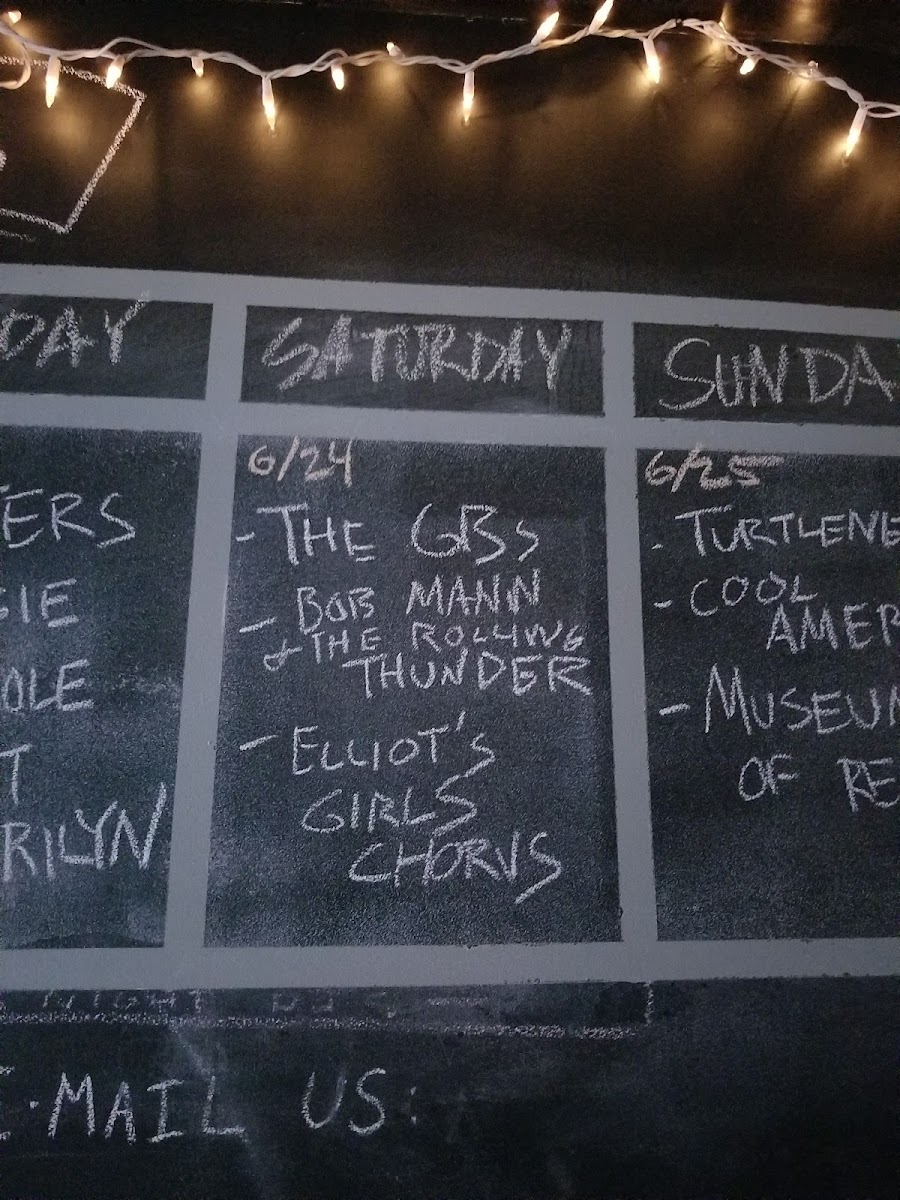 DAY
ERS
GIE
OLE
T
RILYN
SATURDAY
6/24
-THE GBs
- BOB MANN
& THE ROLLING
THUNDER
- ELLIOT'S
GIRLS
CHORUS
SUNDA
6/25
- TURTLENE
- COOL
AMER
- MUSEUM
OF RE
NIGHT
E-MAIL US: